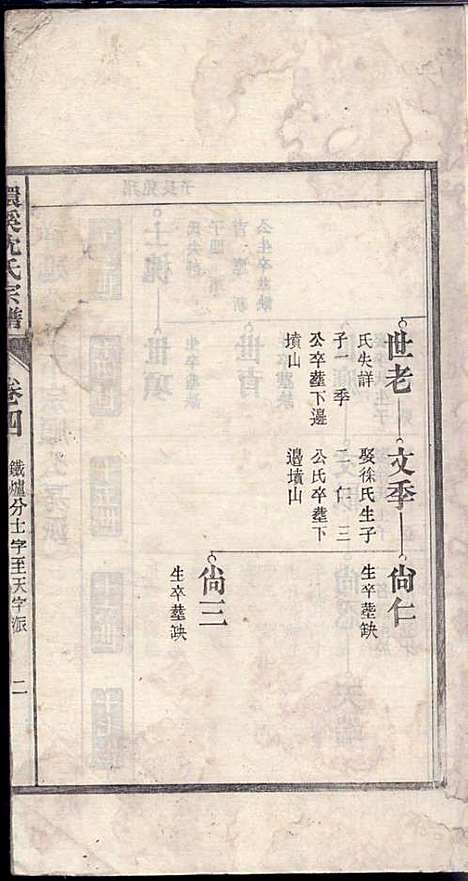 世老
氏失詳
子一季
公卒塟下邊
墳山
文季
娶徐氏生子
二 仁 三
公氏卒塟下
邉墳山
尙仁
生卒塟缺
尙三
生卒塟缺
環溪沈氏宗譜
卷四
鐵爐分士字至天字派
二